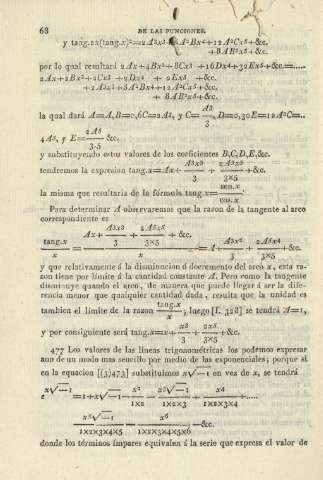 68 DE LAS FUNCIONES.
y tang.2x(tang.x)²=2A³x³+8A²Bx⁴+12A²Cx⁵+&c.
+8AB²x⁵+&c.
por lo qual resultará 2Ax+4Bx²+8Cx³+16Dx⁴+32Ex⁵+&c.=.....
2Ax+2Bx²+2Cx³+2Dx⁴+2Ex⁵+&c.
+2A³x³+8A²Bx⁴+12A²Cx⁵+&c.
+8AB²x⁵+&c.
la qual dará A=A, B=0, 6C=2A³, y C=A³/3, D=0, 30E=12A²C=..
4A⁵, y E=2A⁵/3.5 &c.
y substituyendo estos valores de los coeficientes B,C,D,E,&c.
tendremos la expresion tang.x=Ax+A³x³/3+2A⁵x⁵/3×5+&c.
la misma que resultaria de la fórmula tang.x=sen.x/cos.x
Para determinar A observaremos que la razon de la tangente al arco
correspondiente es
tang.x/x=(Ax+A³x³/3+2A⁵x⁵/3×5+&c.)/x=A+A³x²/3+2A⁵x⁴/3×5+&c.
y que relativamente á la disminucion ó decremento del arco x, esta ra-
zon tiene por límite á la cantidad constante A. Pero como la tangente
disminuye quando el arco, de manera que puede llegar á ser la dife-
rencia menor que qualquier cantidad dada, resulta que la unidad es
tambien el límite de la razon tang.x/x; luego [I. 328] se tendrá A=1,
y por consiguiente será tang.x=x+x³/3+2x⁵/3×5+&c.
477 Los valores de las líneas trigonométricas los podemos expresar
aun de un modo mas sencillo por medio de las exponenciales; porque si
en la equacion [(3)473] substituimos x√−1 en vez de x, se tendrá
e^x√−1=1+x√−1−x²/1×2−x³√−1/1×2×3+x⁴/1×2×3×4+.....
x⁵√−1/1×2×3×4×5−x⁶/1×2×3×4×5×6−&c.
donde los términos impares equivalen á la serie que expresa el valor de